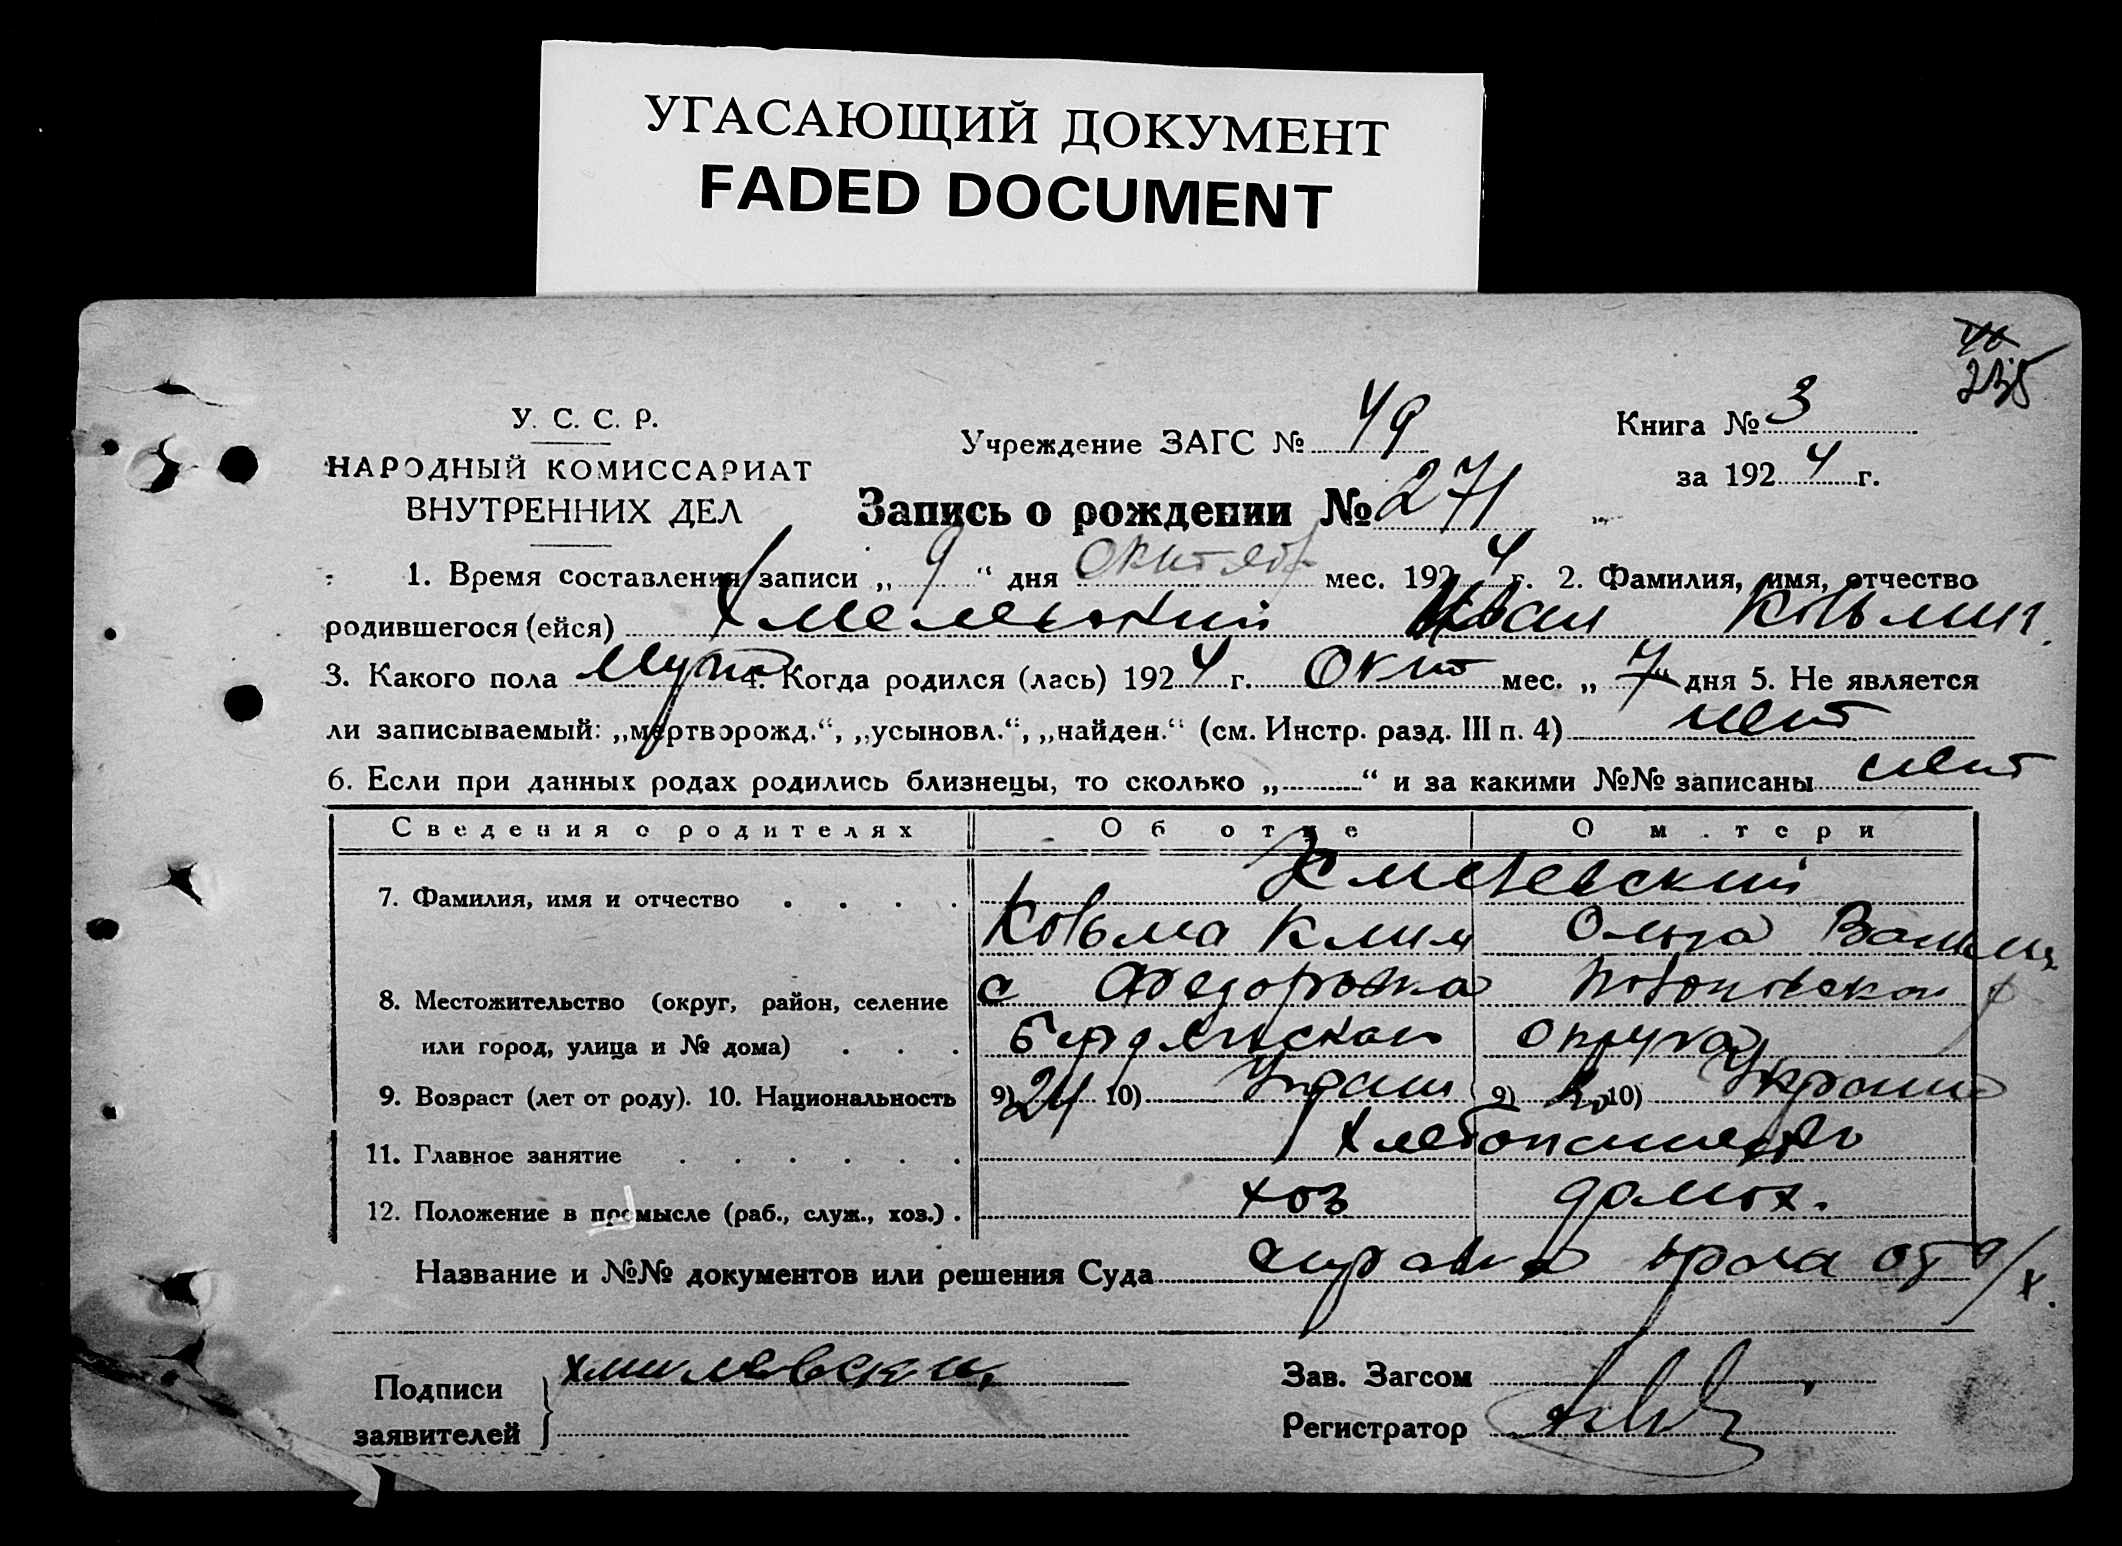 УГАСАЮЩИЙ ДОКУМЕНТ
FADED DOCUMENT
235
У. С. С. Р.
НАРОДНЫЙ КОМИССАРИАТ
ВНУТРЕННИХ ДЕЛ
Учреждение ЗАГС № 49
Книга № 3
за 192 4 г.
Запись о рождении № 271
1. Время составления записи „ 9 “ дня Октяб мес. 192 4 г. 2. Фамилия, имя, отчество
родившегося (ейся) Иван Козьмин
3. Какого пола муж 4. Когда родился (лась) 192 4 г. Окт мес. „ 7 “ дня 5. Не является
ли записываемый: „мертворожд.“, „усыновл.“, „найден.“ (см. Инстр. разд. III п. 4) нет
6. Если при данных родах родились близнецы, то сколько „ “ и за какими №№ записаны нет
Сведения о родителях Об отце О матери
7. Фамилия, имя и отчество
Козьма Клим Ольга
8. Местожительство (округ, район, селение с
или город, улица и № дома) округа
9. Возраст (лет от роду). 10. Национальность 9) 24 10) Украин 9) 10) Украин
11. Главное занятие Хлебопашество
12. Положение в промысле (раб., служ., хоз.) хоз домох.
Название и №№ документов или решения Суда справка врача от 9/X.
Подписи
заявителей
Зав. Загсом
Регистратор